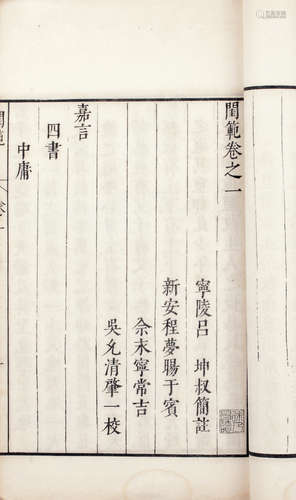 閨範卷之一
寧陵呂 坤叔簡註
新安程夢暘于賓
佘末寧常吉
吳允清肇一校
嘉言
四書
中庸
閨範